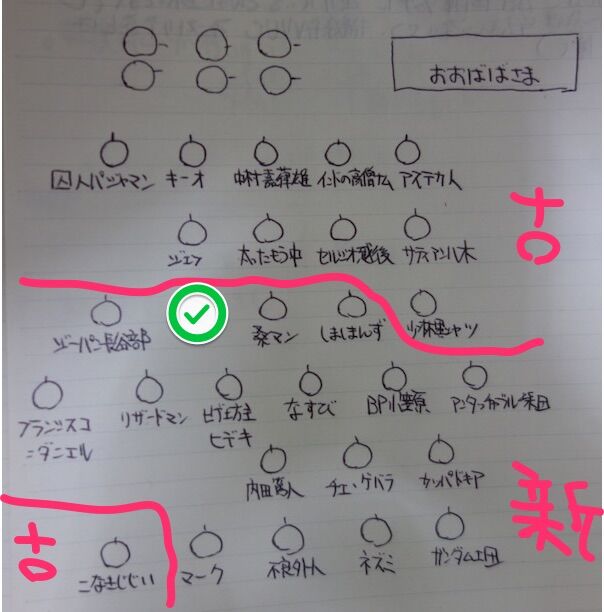 おおばばさま
囚人パジャマン キーオ 中村嘉葎雄 インドの高僧カム アイテカ人
古
ジェフ 太ったもう中 セルジオ越後 サティアン八木
ジーパン長谷部 桑マン しましまんず 少林裏シャツ
フランシスコ
ニダニエル
リザードマン
ヒゲ坊主
ヒデキ
なすび
内田篤人 チェ・ゲバラ カッパドキア
新
古
こなきじじい マーク 不良外人 ネズミ ガンダム土田